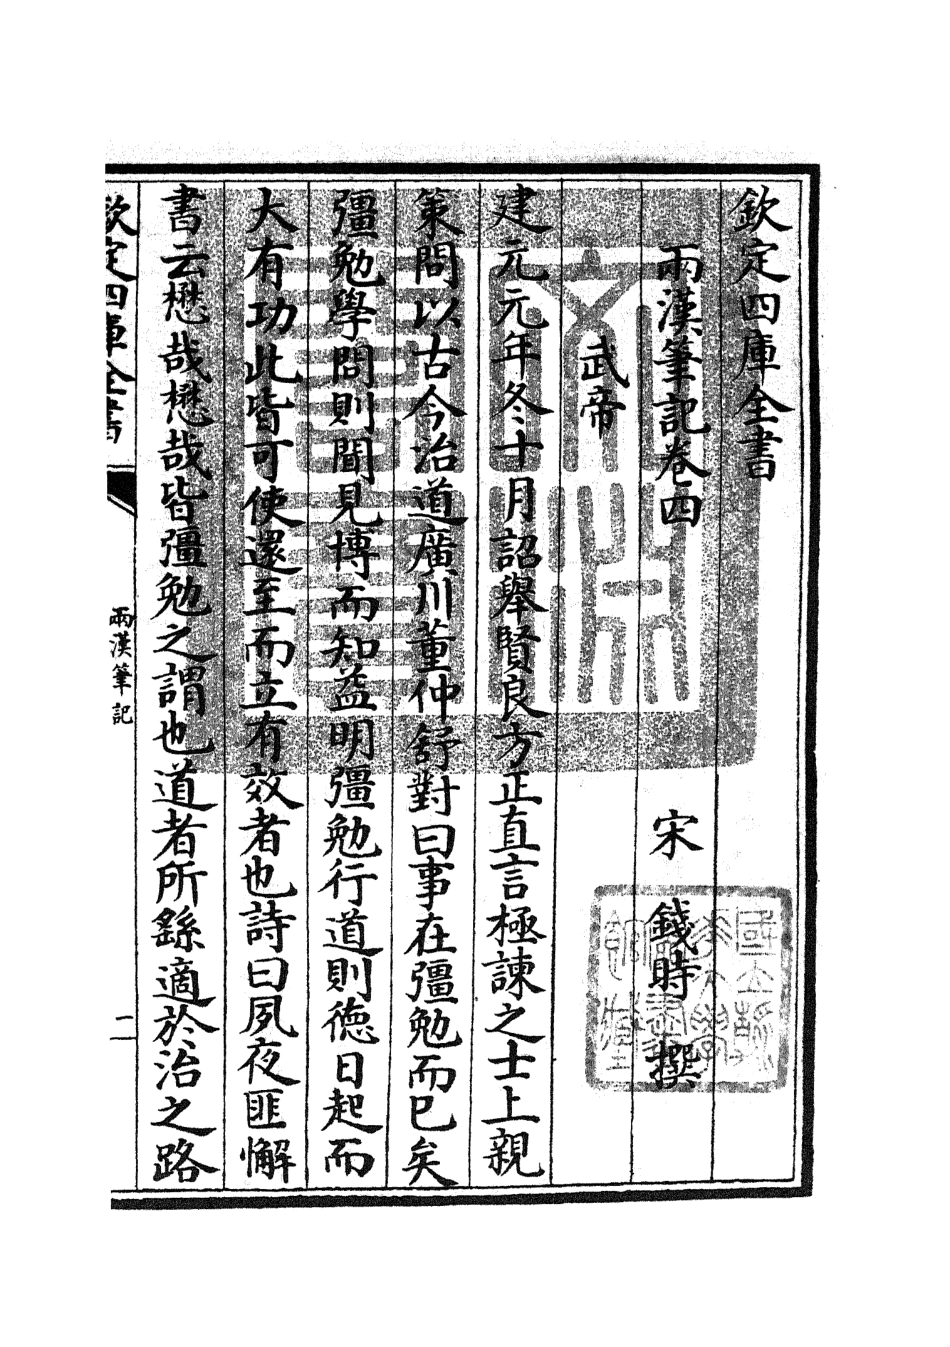 欽定四庫全書
兩漢筆記卷四
宋 錢時 撰
武帝
建元元年冬十月詔舉賢良方正直言極諫之士上親
策問以古今治道廣川董仲舒對曰事在彊勉而已矣
彊勉學問則聞見博而知益明彊勉行道則德日起而
大有功此皆可使還至而立有效者也詩曰夙夜匪懈
書云懋哉懋哉皆彊勉之謂也道者所繇適於治之路
欽定四庫全書
兩漢筆記